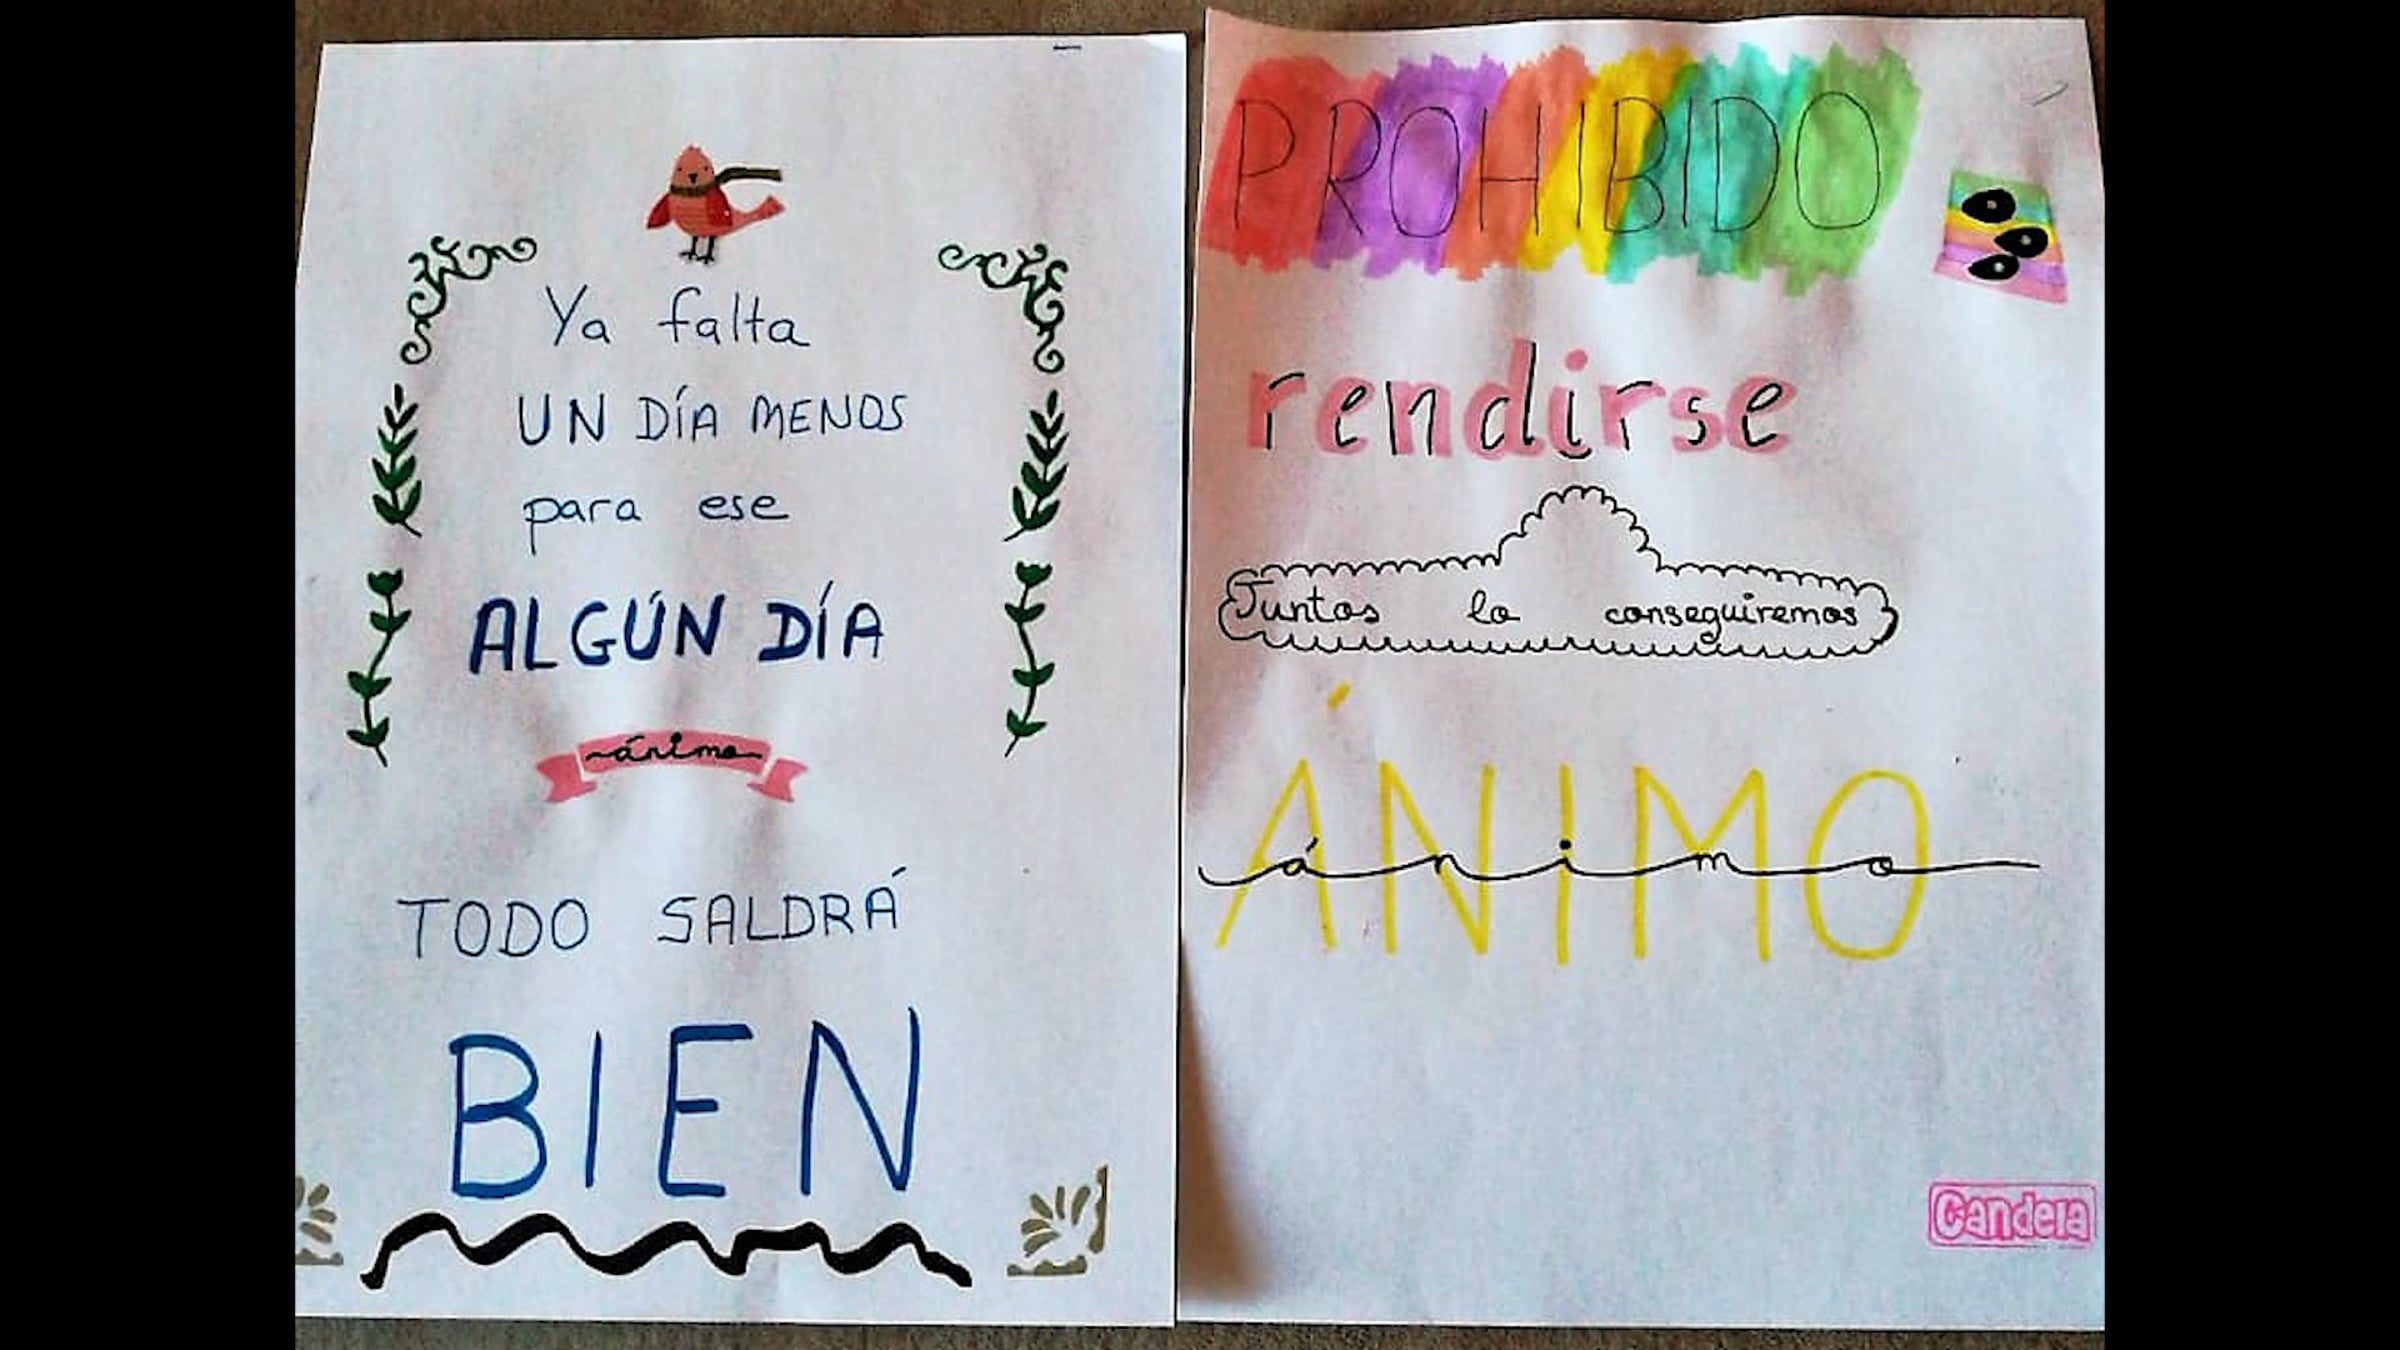 Ya falta
UN DÍA MENOS
para ese
ALGÚN DÍA
ánimo
TODO SALDRÁ
BIEN
PROHIBIDO
rendirse
Juntos lo conseguiremos
ÁNIMO
ánimo
Candela